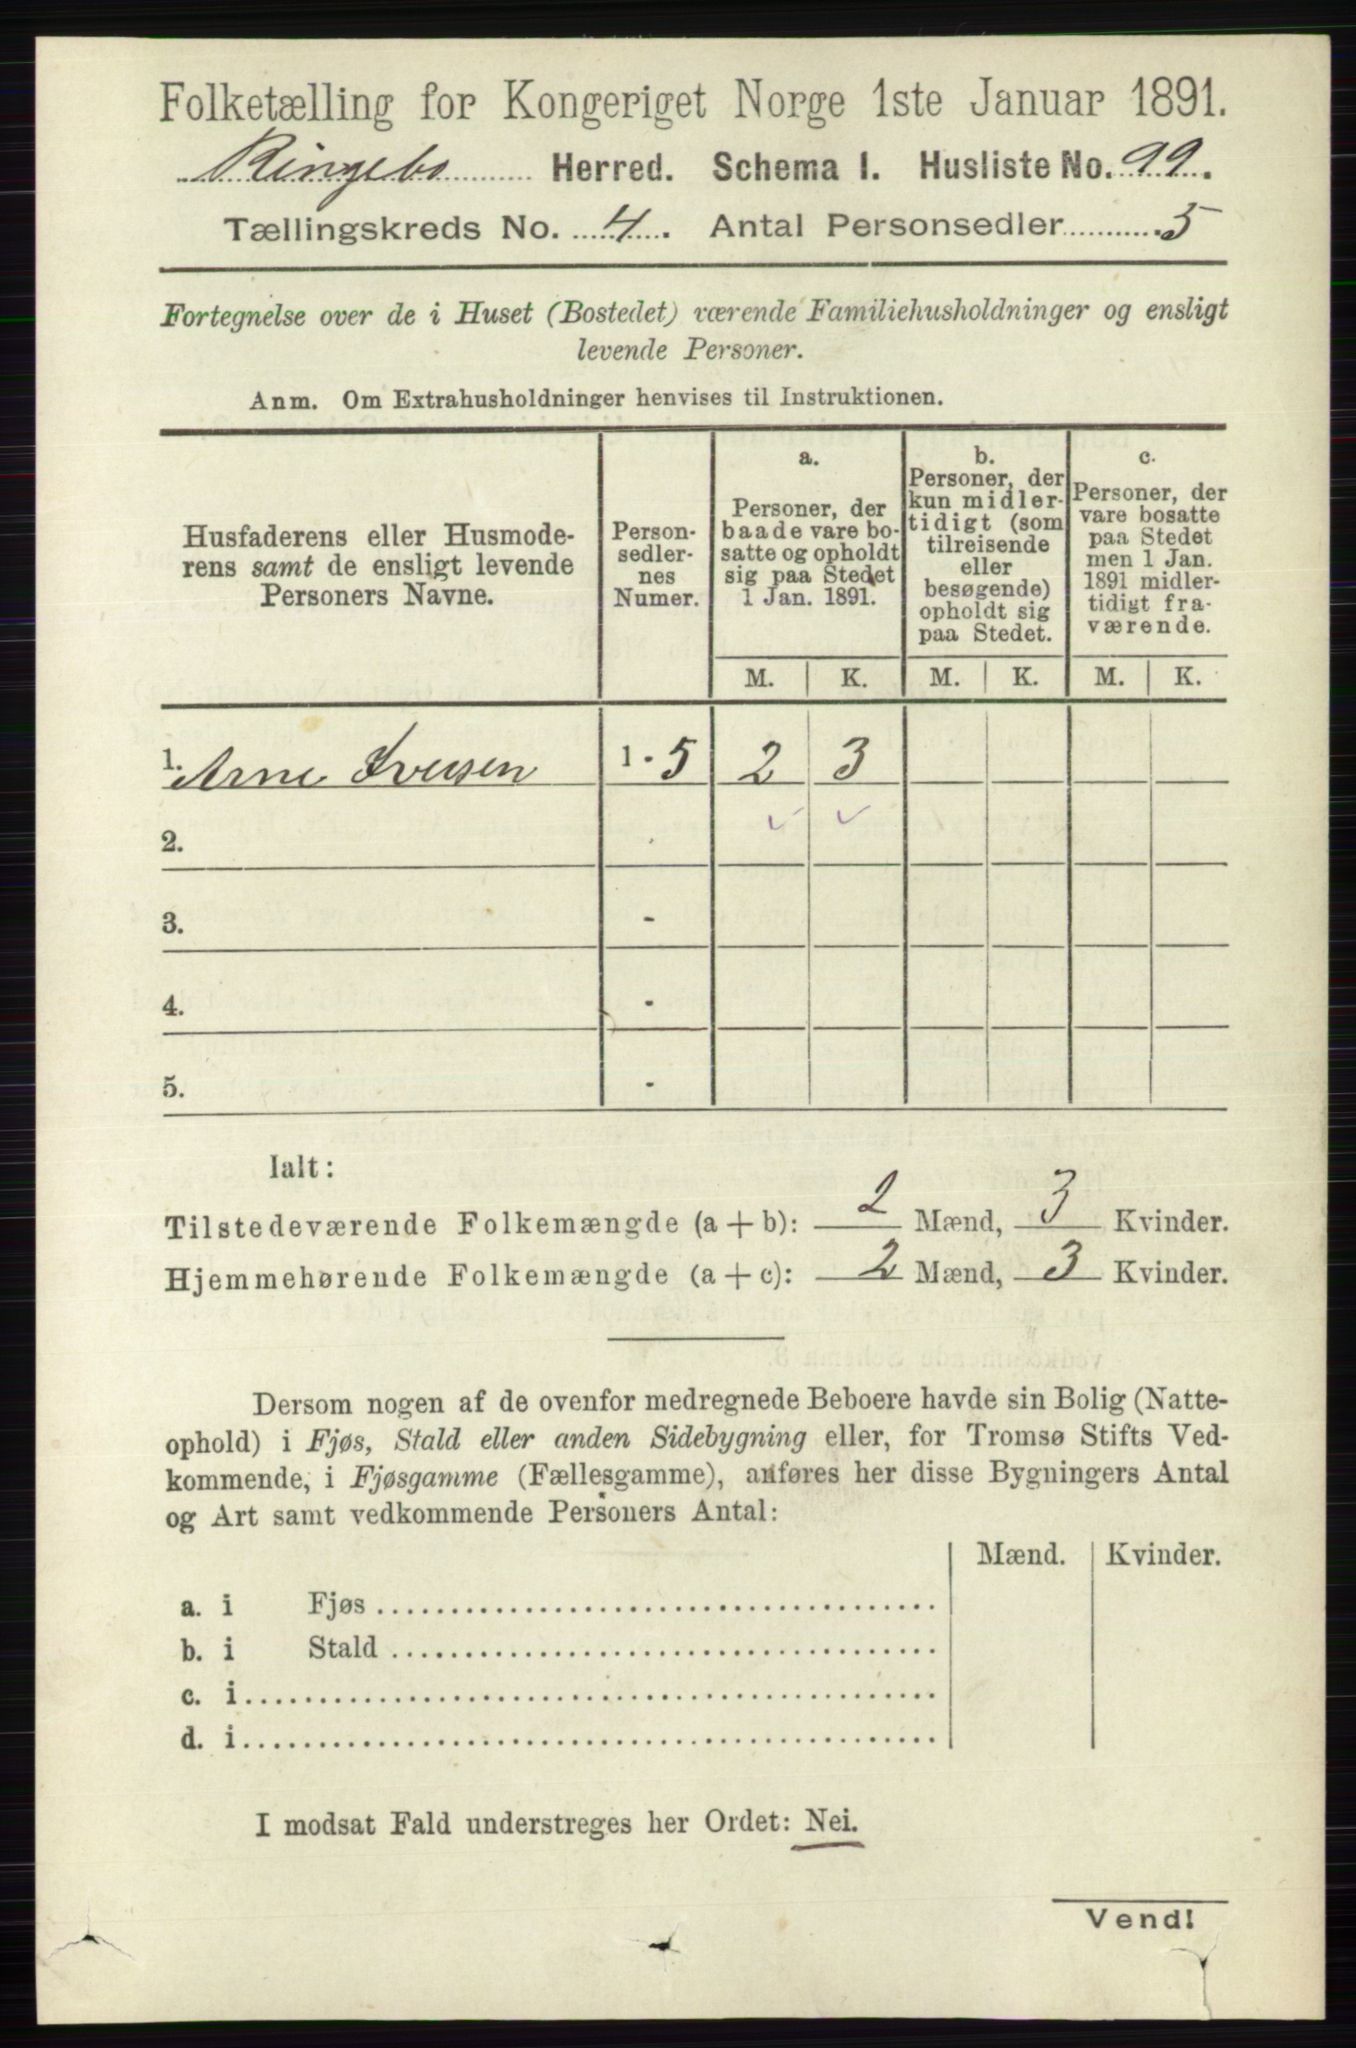 Folketælling for Kongeriget Norge 1ste Januar 1891.
Ringebo Herred. Schema I. Husliste No. 99.
Tællingskreds No. 4. Antal Personsedler 5
Fortegnelse over de i Huset (Bostedet) værende Familiehusholdninger og ensligt
levende Personer.
Anm. Om Extrahusholdninger henvises til Instruktionen.
Husfaderens eller Husmode-
rens samt de ensligt levende
Personers Navne.
Person-
sedler-
nes
Numer.
a.
Personer, der
baade vare bo-
satte og opholdt
sig paa Stedet
1 Jan. 1891.
b.
Personer, der
kun midler-
tidigt (som
tilreisende
eller
besøgende)
opholdt sig
paa Stedet.
c.
Personer, der
vare bosatte
paa Stedet
men 1 Jan.
1891 midler-
tidigt fra-
værende.
M. K. M. K. M. K.
1. Arne Iversen 1 - 5 2 3
2.
3. -
4. -
5. -
Ialt:
Tilstedeværende Folkemængde (a + b): 2 Mænd, 3 Kvinder.
Hjemmehørende Folkemængde (a + c): 2 Mænd, 3 Kvinder.
Dersom nogen af de ovenfor medregnede Beboere havde sin Bolig (Natte-
ophold) i Fjøs, Stald eller anden Sidebygning eller, for Tromsø Stifts Ved-
kommende, i Fjøsgamme (Fællesgamme), anføres her disse Bygningers Antal
og Art samt vedkommende Personers Antal:
Mænd. Kvinder.
a. i Fjøs
b. i Stald
c. i
d. i
I modsat Fald understreges her Ordet: Nei.
Vend!